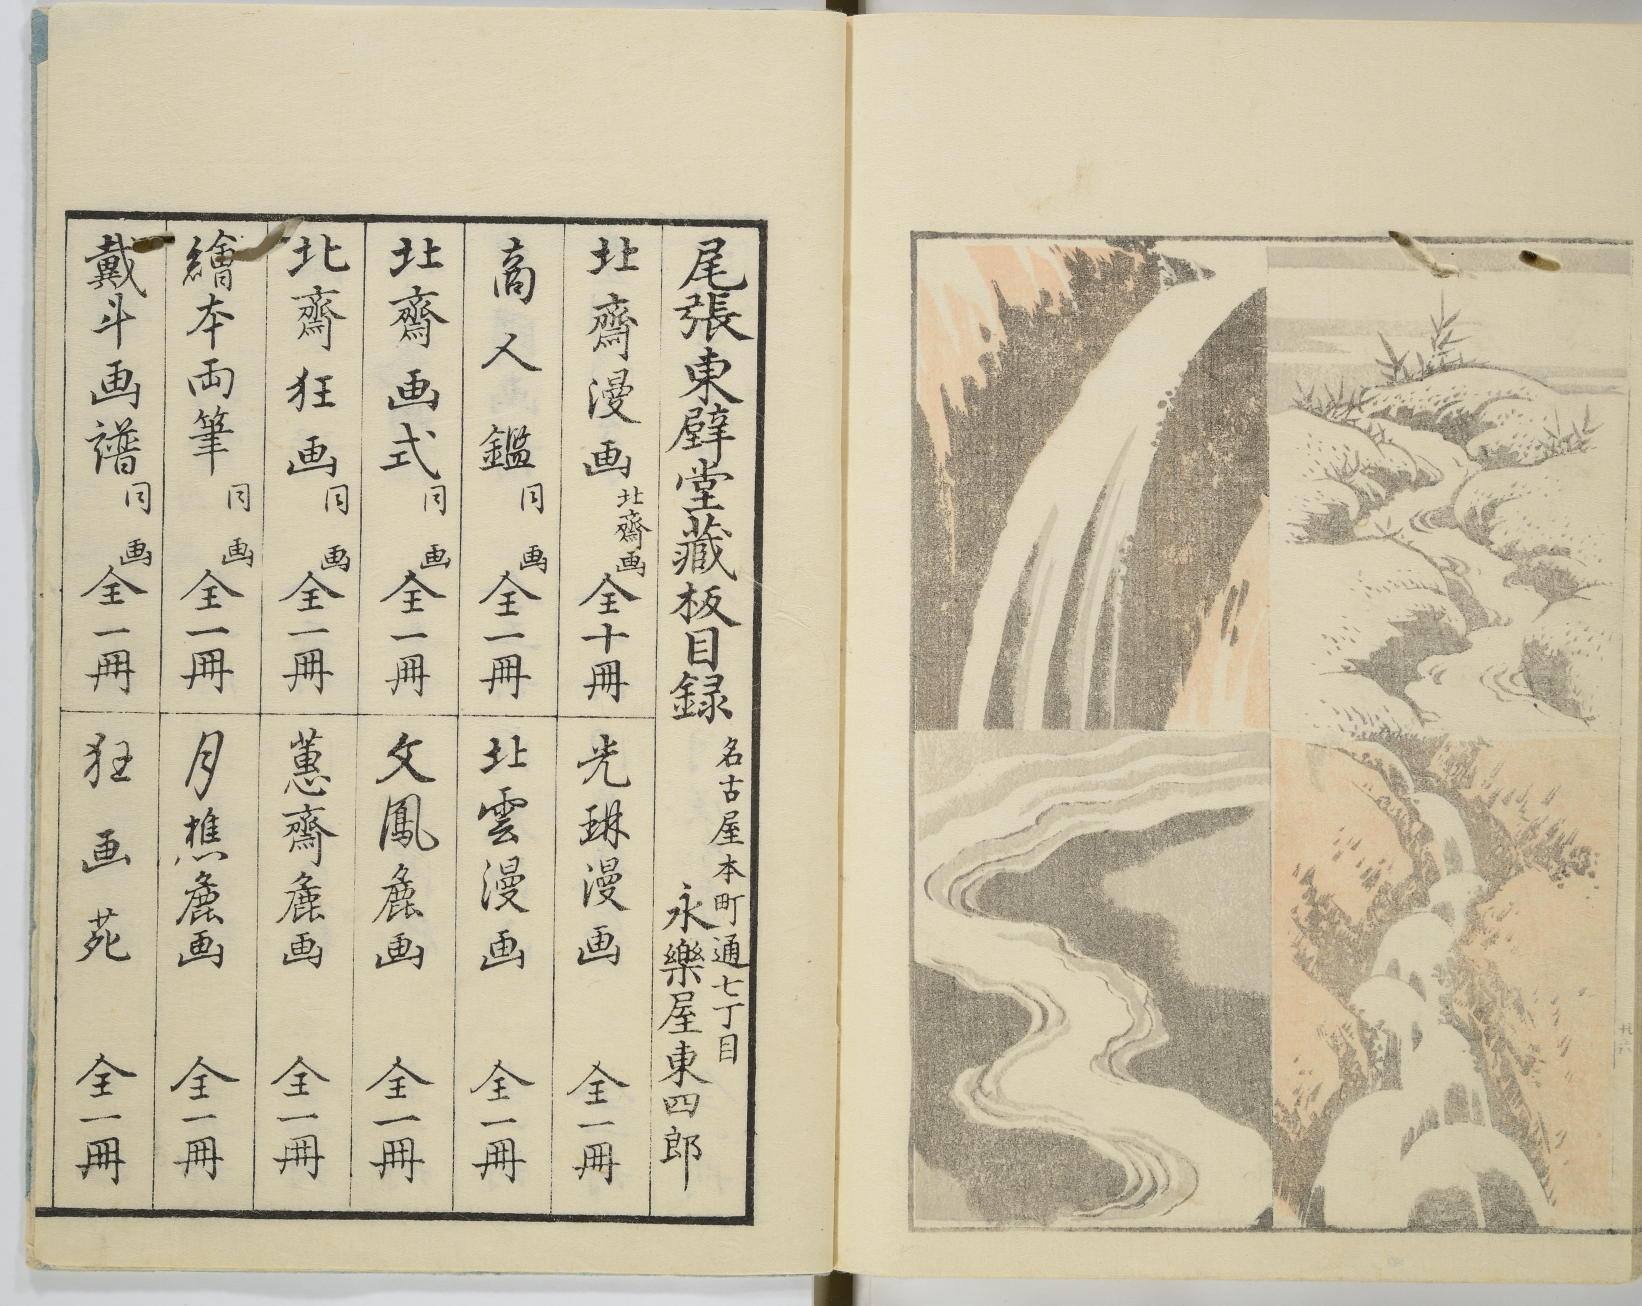 尾張東壁堂藏板目録
名古屋本町通七丁目
永樂屋東四郎
北齋漫画 北齋画 全十冊
光琳漫画 全一冊
商人鑑 同画 全一冊
北雲漫画 全一冊
北齋画式 同画 全一冊
文鳳麁画 全一冊
北齋狂画 同画 全一冊
蕙齋麁画 全一冊
繪本両筆 同画 全一冊
月樵麁画 全一冊
戴斗画譜 同画 全一冊
狂画苑 全一冊